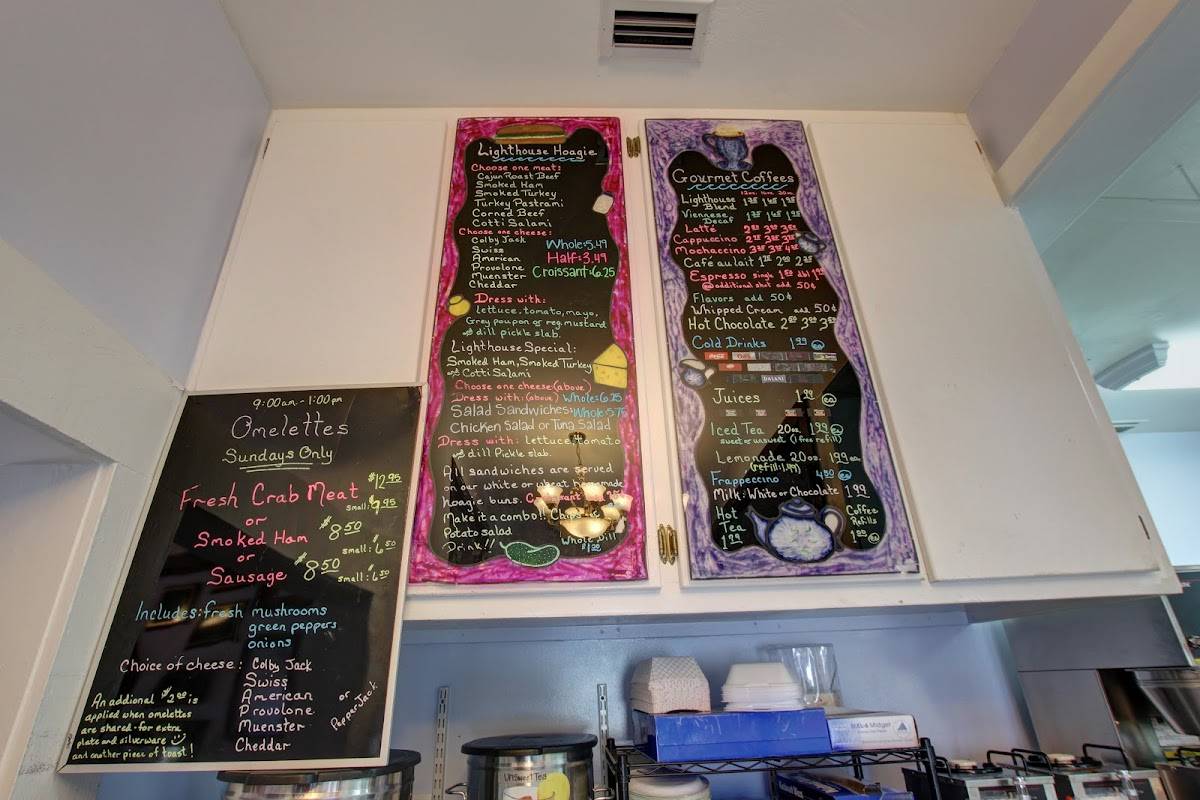 9:00am - 1:00pm
Omelettes
Sundays Only
Fresh Crab Meat $12.95
small: $9.95
or
Smoked Ham $8.50
small: $6.50
or
Sausage $8.50
small: $6.50
Includes: fresh mushrooms
green peppers
onions
Choice of cheese: Colby Jack
Swiss
American
Provolone
Muenster
Cheddar
or
Pepper Jack
An addional $2.00 is
applied when omelettes
are shared - for extra
plate and silverware
and another piece of toast!
Lighthouse Hoagie
Choose one meat:
Cajun Roast Beef
Smoked Ham
Smoked Turkey
Turkey Pastrami
Corned Beef
Cotti Salami
Choose one cheese:
Colby Jack
Swiss
American
Provolone
Muenster
Cheddar
Whole: 5.49
Half: 3.49
Croissant: 6.25
Dress with:
lettuce, tomato, mayo,
Grey poupon or reg. mustard
and dill pickle slab.
Lighthouse Special:
Smoked Ham, Smoked Turkey
and Cotti Salami
Choose one cheese: (above)
Dress with: (above) Whole: 6.25
Salad Sandwiches: Whole: 5.75
Chicken Salad or Tuna Salad
Dress with: lettuce, tomato
and dill Pickle slab.
All sandwiches are served
on our white or wheat homemade
hoagie buns.
Make it a combo!!
Potato salad
Drink!!
Whole Dill
Gourmet Coffees
12oz. 16oz. 20oz.
Lighthouse
Blend 1.35 1.65 1.95
Viennese
Decaf 1.35 1.65 1.95
Latté
Cappuccino
Mochaccino
Café au lait
Espresso single dbl
additional shot add 50¢
Flavors add 50¢
Whipped Cream add 50¢
Hot Chocolate
Cold Drinks 1.99 ea
DASANI
Juices ea
Iced Tea 20oz. 1.99 ea
sweet or unsweet (1 free refill)
Lemonade 20oz. 1.99 ea
Frappuccino 4.50 ea
Milk: White or Chocolate 1.99
Hot
Tea
1.99
Coffee
Refills
ea
Unsweet Tea